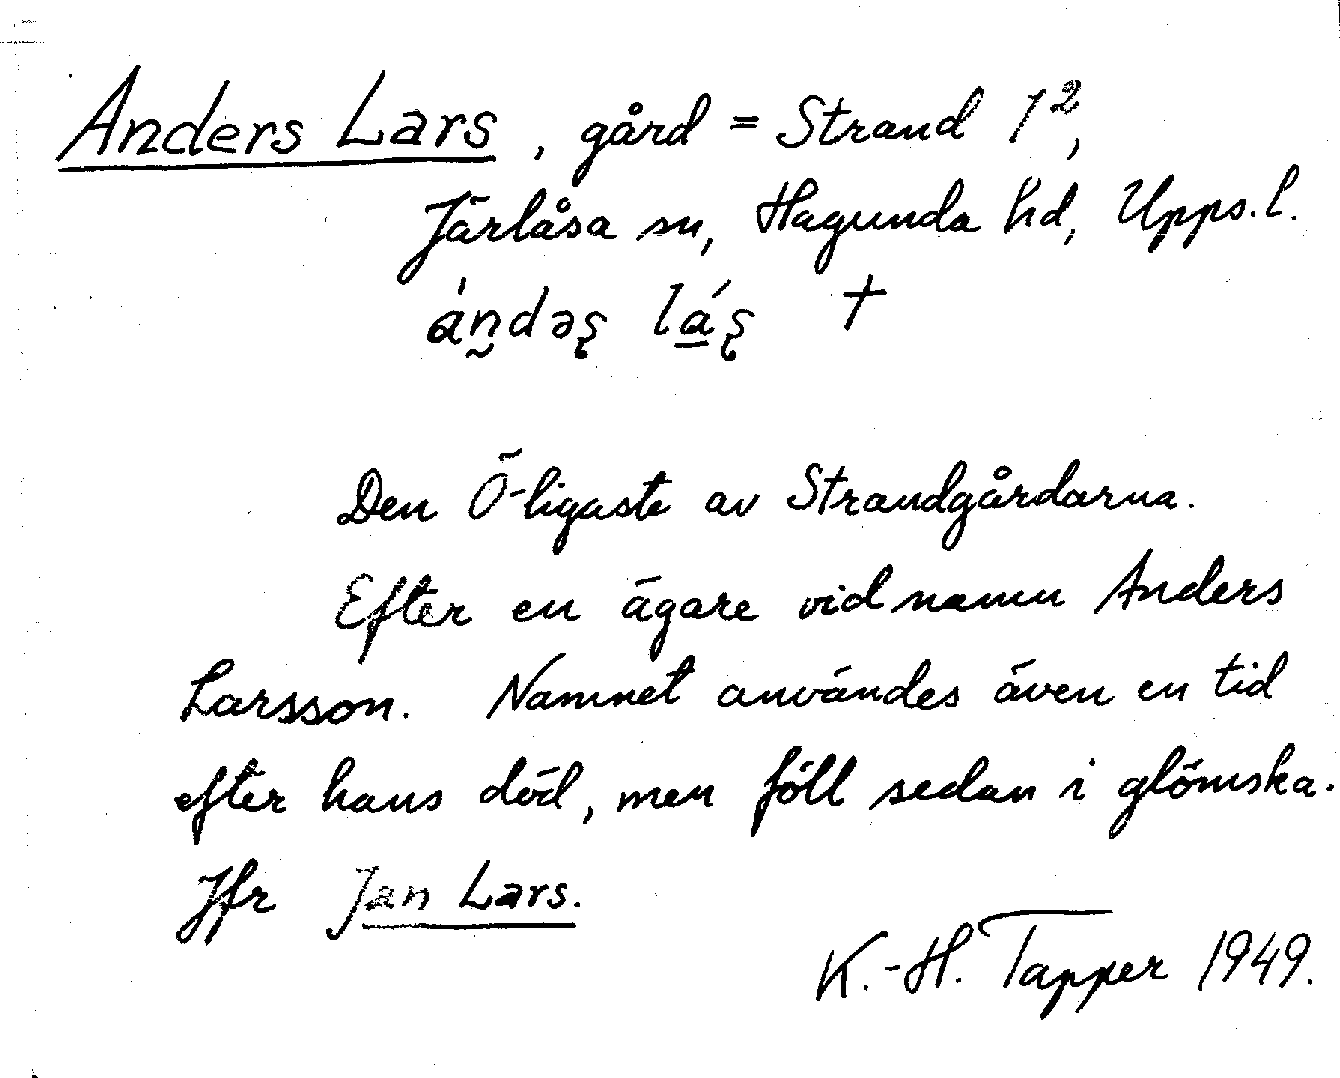 Anders Lars, gård = Strand 1²,
Järlåsa sn, Hagunda hd, Upps.l.
ándəʂ láʂ †
Den Ö-ligaste av Strandgårdarna.
Efter en ägare vid namn Anders
Larsson. Namnet användes även en tid
efter hans död, men föll sedan i glömska.
Jfr Jan Lars.
K.-H. Tapper 1949.